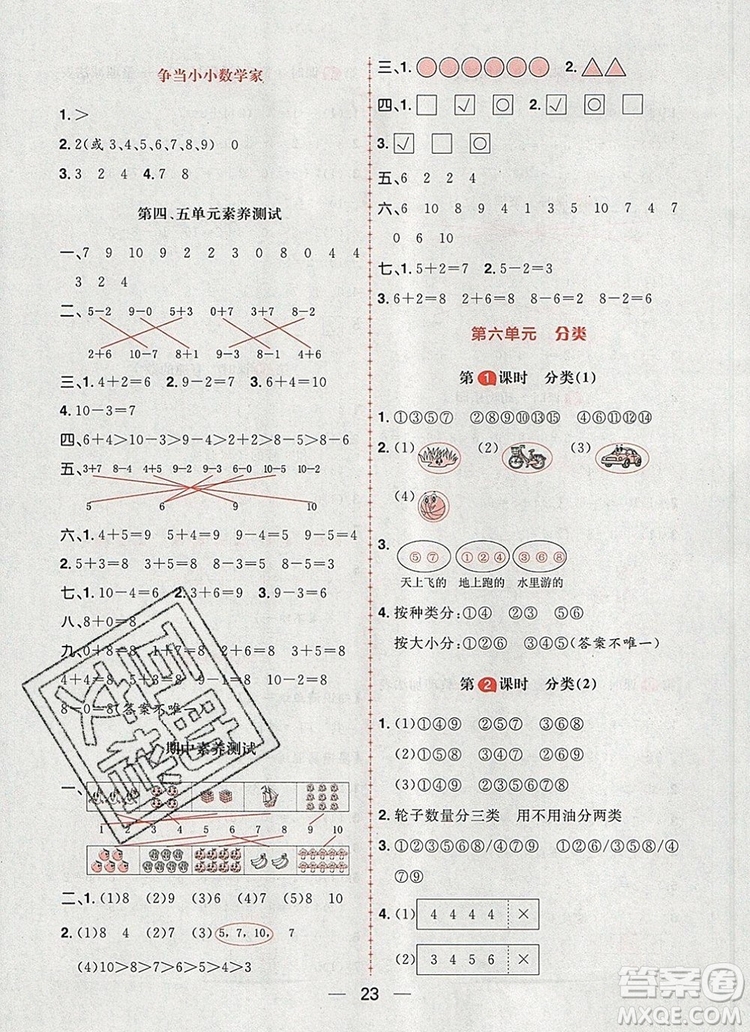 争当小小数学家
1. >
2. 2(或 3、4、5、6、7、8、9) 0
3. 3 2 4 4. 7 8
第四、五单元素养测试
一、7 9 10 9 2 3 0 8 0 4 4
3 2 4
二、5-2 9-0 5+3 0+7 3+7 8-2
2+6 10-7 8+1 8-1 9-3 10-0
三、1. 4+2=6 2. 9-3=6 3. 10-4=6
4. 10-0=10
四、6+4>10-1>2+6>10-3>8-2>5
五、3+7 8-4 4+5 9-4 2+8 9-0 10-5 10-6
5 6 9 10
六、1. 4+5=9 9-4=5 9-5=4
2. 5+3=8 3+5=8 8-3=5 8-5=3
七、1. 10-4=6 2. 6-6=0 3. 9-6=3
八、8+0=8 8-8=0
九、0+8=8 1+7=8 2+6=8 3+5=8
4+4=8 10-2=8 9-1=8
8-0=8(答案不唯一)
期中素养测试
一、
1 2 3 4 5 6 7 8 9 10
二、1. (1)8 (2)6 (3)6 (4)7 (5)6 (6)8
2. (1)8 4 (2)7 (3) 5, 7, 10, 7
(4)10>8>7>5>4>2>1>0
三、1. 2.
四、1. □ ☑ ⊙ 2. ☑ ⊙ □
3. ☑ □ ⊙
五、6 2 2 4
六、6 10 4 9 6 8 3 4 4 2 7
0 6 10
七、1. 5+2=7 2. 5-2=3
3. 6+2=8 2+6=8 8-6=2 8-2=6
第六单元 分类
第1课时 分类(1)
1. ①③⑤⑦ ②④⑧⑨⑩⑬ ⑥⑪⑫⑭
2. (1) (2) (3)
(4)
3. ⑤⑦ ①②④ ③⑥⑧
天上飞的 地上跑的 水里游的
4. 按种类分:①④ ②⑤ ③⑥
按大小分:①②③ ④⑤⑥(答案不唯一)
第2课时 分类(2)
1. (1)①④⑨ ②⑤⑧ ③⑥⑦
(2)①③⑤ ②④⑦ ⑥⑧⑨
(3)①②③ ④⑤⑥ ⑦⑧⑨
2. 轮子数量分三类 用不用油分两类
3. ①②③④⑤⑥⑦⑧⑨/①③⑤⑥⑧/②④
⑦⑨
4. (1) 4 4 4 4 ×
(2) 3 4 5 6 ×
23
答案圈
MXQE.COM